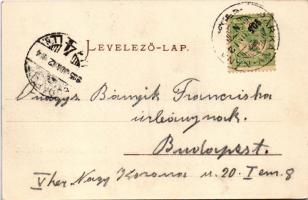 LEVELEZŐ-LAP.
Nagys. Bányik Franciska
úrleánynak.
Budapest.
V ker. Nagy Korona u. 20. I em. 8